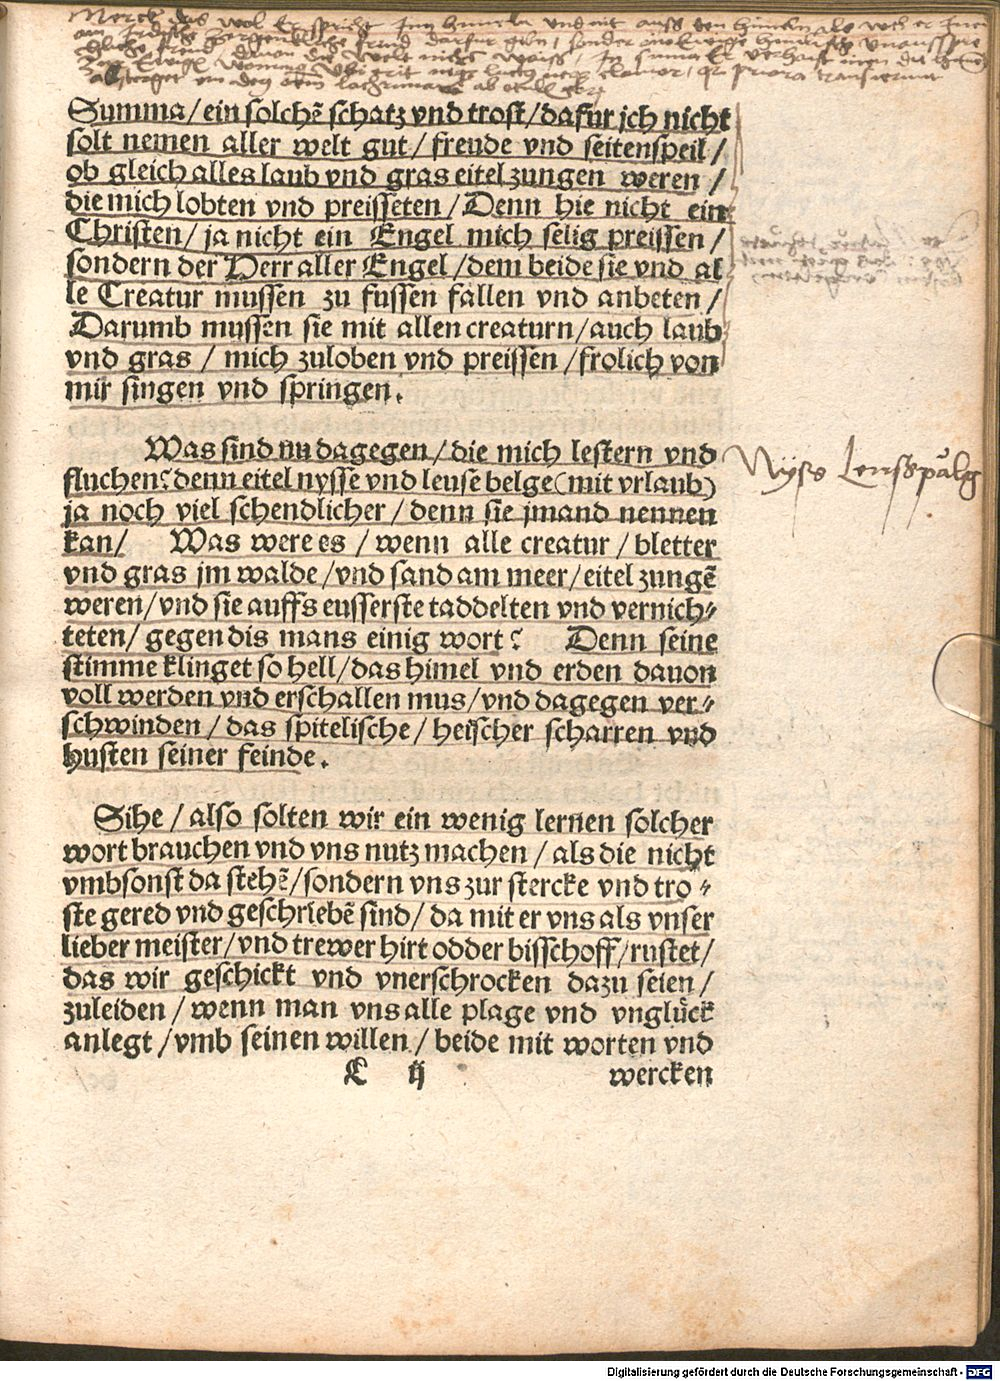 Merck das wol Er spricht Inn himeln und nit auss den himeln
Summa/ein solchẽ schatz vnd trost/dafur jch nicht
solt nemen aller welt gut/freude vnd seitenspeil/
ob gleich alles laub vnd gras eitel zungen weren/
die mich lobten vnd preisseten/Denn hie nicht ein
Christen/ja nicht ein Engel mich selig preissen/
sondern der Herr aller Engel/dem beide sie vnd al
le Creatur mussen zu fussen fallen vnd anbeten/
Darumb mussen sie mit allen creaturn/auch laub
vnd gras/mich zuloben vnd preissen/frolich von
mir singen vnd springen.
Was sind nu dagegen/die mich lestern vnd
fluchen? denn eitel nysse vnd leuse belge (mit vrlaub)
ja noch viel schendlicher/denn sie jmand nennen
kan/ Was were es/wenn alle creatur/bletter
vnd gras jm walde/vnd sand am meer/eitel zungẽ
weren/vnd sie auffs eusserste taddelten vnd vernich⸗
teten/gegen dis mans einig wort? Denn seine
stimme klinget so hell/das himel vnd erden dauon
voll werden vnd erschallen mus/vnd dagegen ver⸗
schwinden/das spitelische/heischer scharren vnd
husten seiner feinde.
Nyss Lensspälg
Sihe/also solten wir ein wenig lernen solcher
wort brauchen vnd vns nutz machen/als die nicht
vmbsonst da stehẽ/sondern vns zur stercke vnd tro⸗
ste gered vnd geschriebẽ sind/da mit er vns als vnser
lieber meister/vnd trewer hirt odder bisschoff/rustet/
das wir geschickt vnd vnerschrocken dazu seien/
zuleiden/wenn man vns alle plage vnd vnglück
anlegt/vmb seinen willen/beide mit worten vnd
C ij wercken
Digitalisierung gefördert durch die Deutsche Forschungsgemeinschaft - DFG